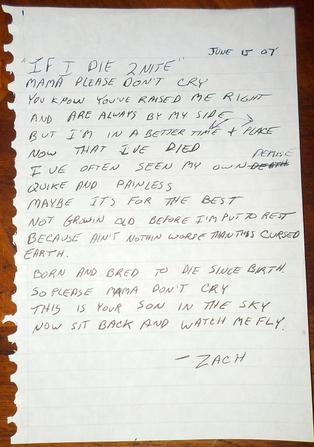 JUNE 15 07
"IF I DIE 2NITE"
MAMA PLEASE DON'T CRY
YOU KNOW YOU'VE RAISED ME RIGHT
AND ARE ALWAYS BY MY SIDE
BUT I'M IN A BETTER TIME + PLACE
NOW THAT I'VE DIED
I'VE OFTEN SEEN MY OWN DEATH DEMISE
QUIKE AND PAINLESS
MAYBE IT'S FOR THE BEST
NOT GROWIN OLD BEFORE I'M PUT TO REST
BECAUSE AIN'T NOTHIN WORSE THAN THIS CURSED
EARTH.
BORN AND BRED TO DIE SINCE BIRTH.
SO PLEASE MAMA DON'T CRY
THIS IS YOUR SON IN THE SKY
NOW SIT BACK AND WATCH ME FLY.
- ZACH